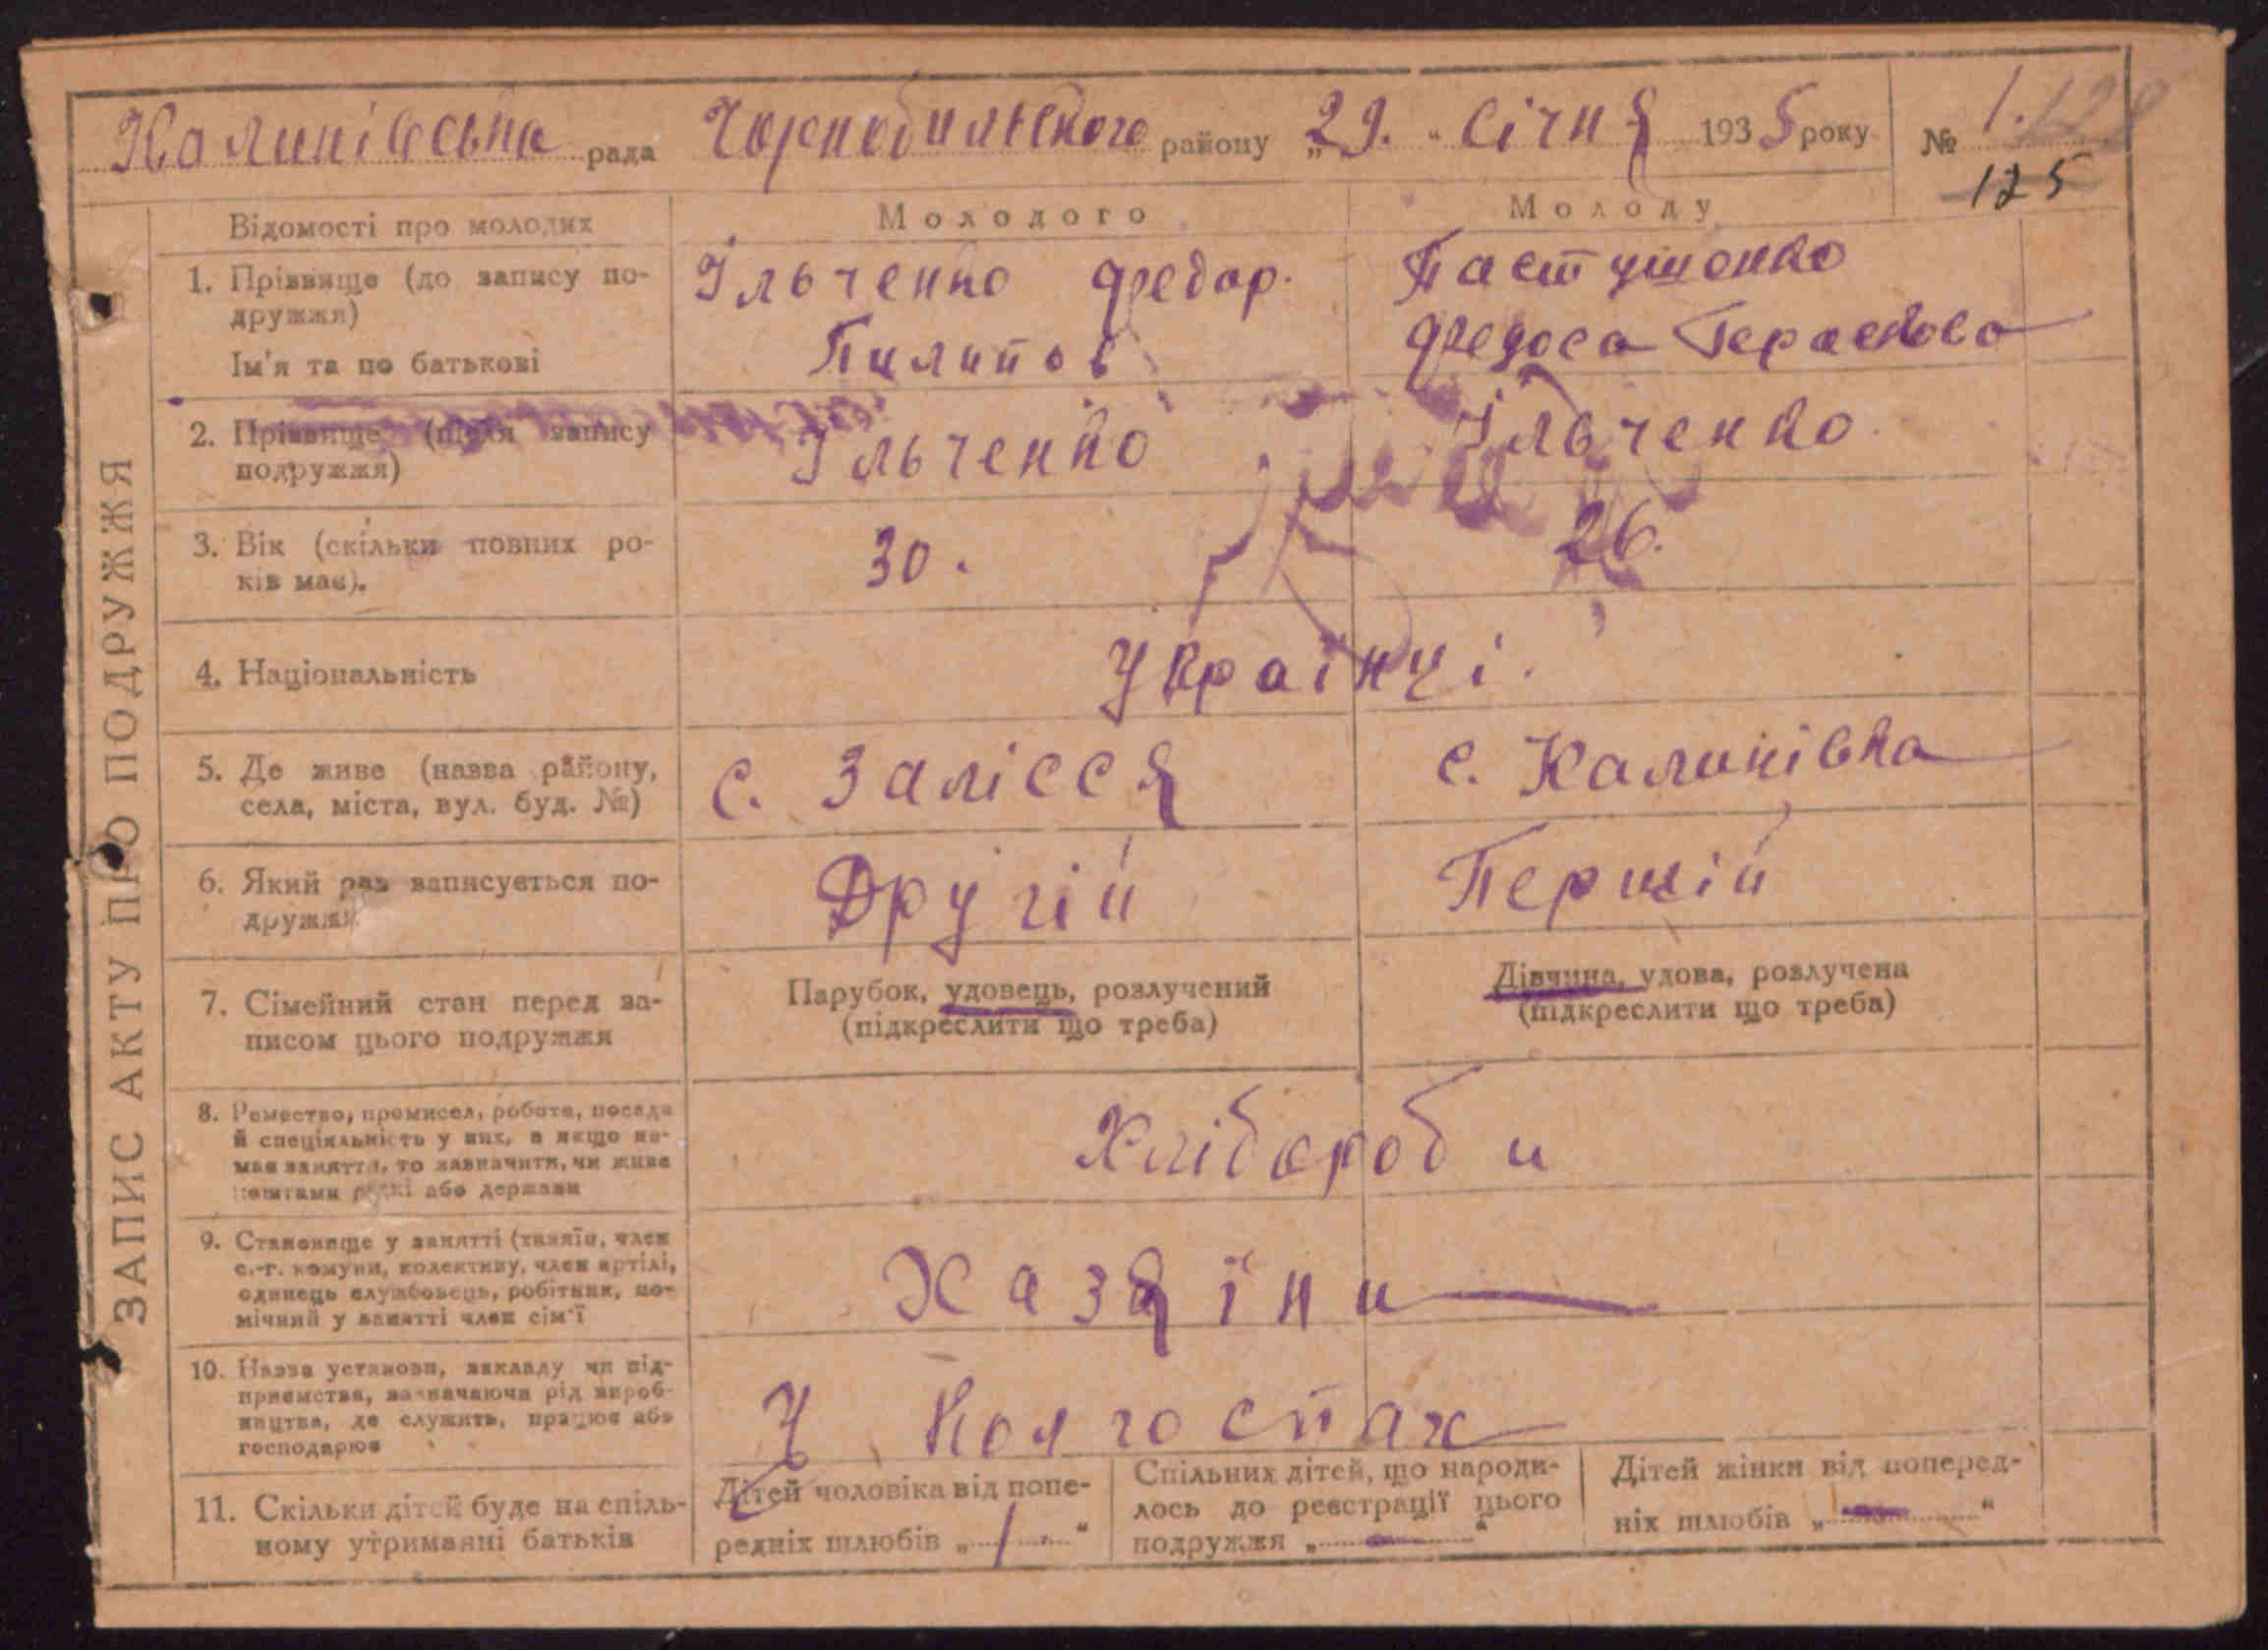 Калинівська рада Чорнобильського району „29." Січня 1935 року № 1.
125
ЗАПИС АКТУ ПРО ПОДРУЖЖЯ
Відомості про молодих
Молодого
Молоду
1. Прізвище (до запису по-
дружжя)
Ім'я та по батькові
Ільченко Федор.
Пилипов
Пастушенко
Федоса Гераскова
2. Прізвище (після запису
подружжя)
Ільченко
Ільченко
3. Вік (скільки повних ро-
ків має).
30.
26.
4. Національність
Українці.
5. Де живе (назва району,
села, міста, вул. буд. №)
с. Залісся
с. Калинівка
6. Який раз записується по-
дружжя
Другій
Першій
7. Сімейний стан перед за-
писом цього подружжя
Парубок, удовець, розлучений
(підкреслити що треба)
Дівчина, удова, розлучена
(підкреслити що треба)
8. Ремество, промисел, робота, посада
й спеціяльність у них, а якщо не-
має заняття, то зазначити, чи живе
коштами рідні або держави
Хлібороби
9. Становище у занятті (хазяїн, член
с.-г. комуни, колективу, член артілі,
одинець службовець, робітник, по-
мічний у занятті член сім'ї
Хазяїни
10. Назва установи, закладу чи під-
приємства, зазначаючи рід вироб-
ництва, де служить, працює або
господарює
У Колгоспах
11. Скільки дітей буде на спіль-
ному утриманні батьків
Дітей чоловіка від попе-
редніх шлюбів „1."
Спільних дітей, що народи-
лось до реєстрації цього
подружжя „—"
Дітей жінки від поперед-
ніх шлюбів „—"